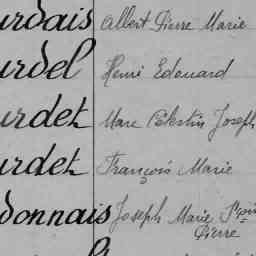 urdais Albert Pierre Marie
urdel Henri Edouard
urdet Marc Célestin Joseph
urdet François Marie
donnais Joseph Marie
Pierre